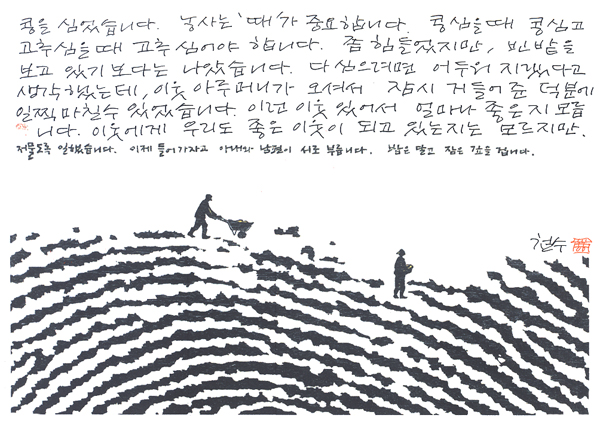 콩을 심었습니다. 농사는 '때'가 중요합니다. 콩심을때 콩심고
고추심을때 고추심어야 합니다. 좀 힘들었지만, 빈밭을
보고 있기보다는 나았습니다. 다심으려면 어두워지겠다고
생각했는데, 이웃 아주머니가 오셔서 잠시 거들어준 덕분에
일찍마칠수 있었습니다. 이런이웃 있어서 얼마나 좋은지 모릅
니다. 이웃에게 우리도 좋은 이웃이 되고 있는지는 모르지만.
저물도록 일했습니다. 이제 들어가자고 아내와 남편이 서로 부릅니다. 밤은 달고 잠은 깊을 겁니다.
철수